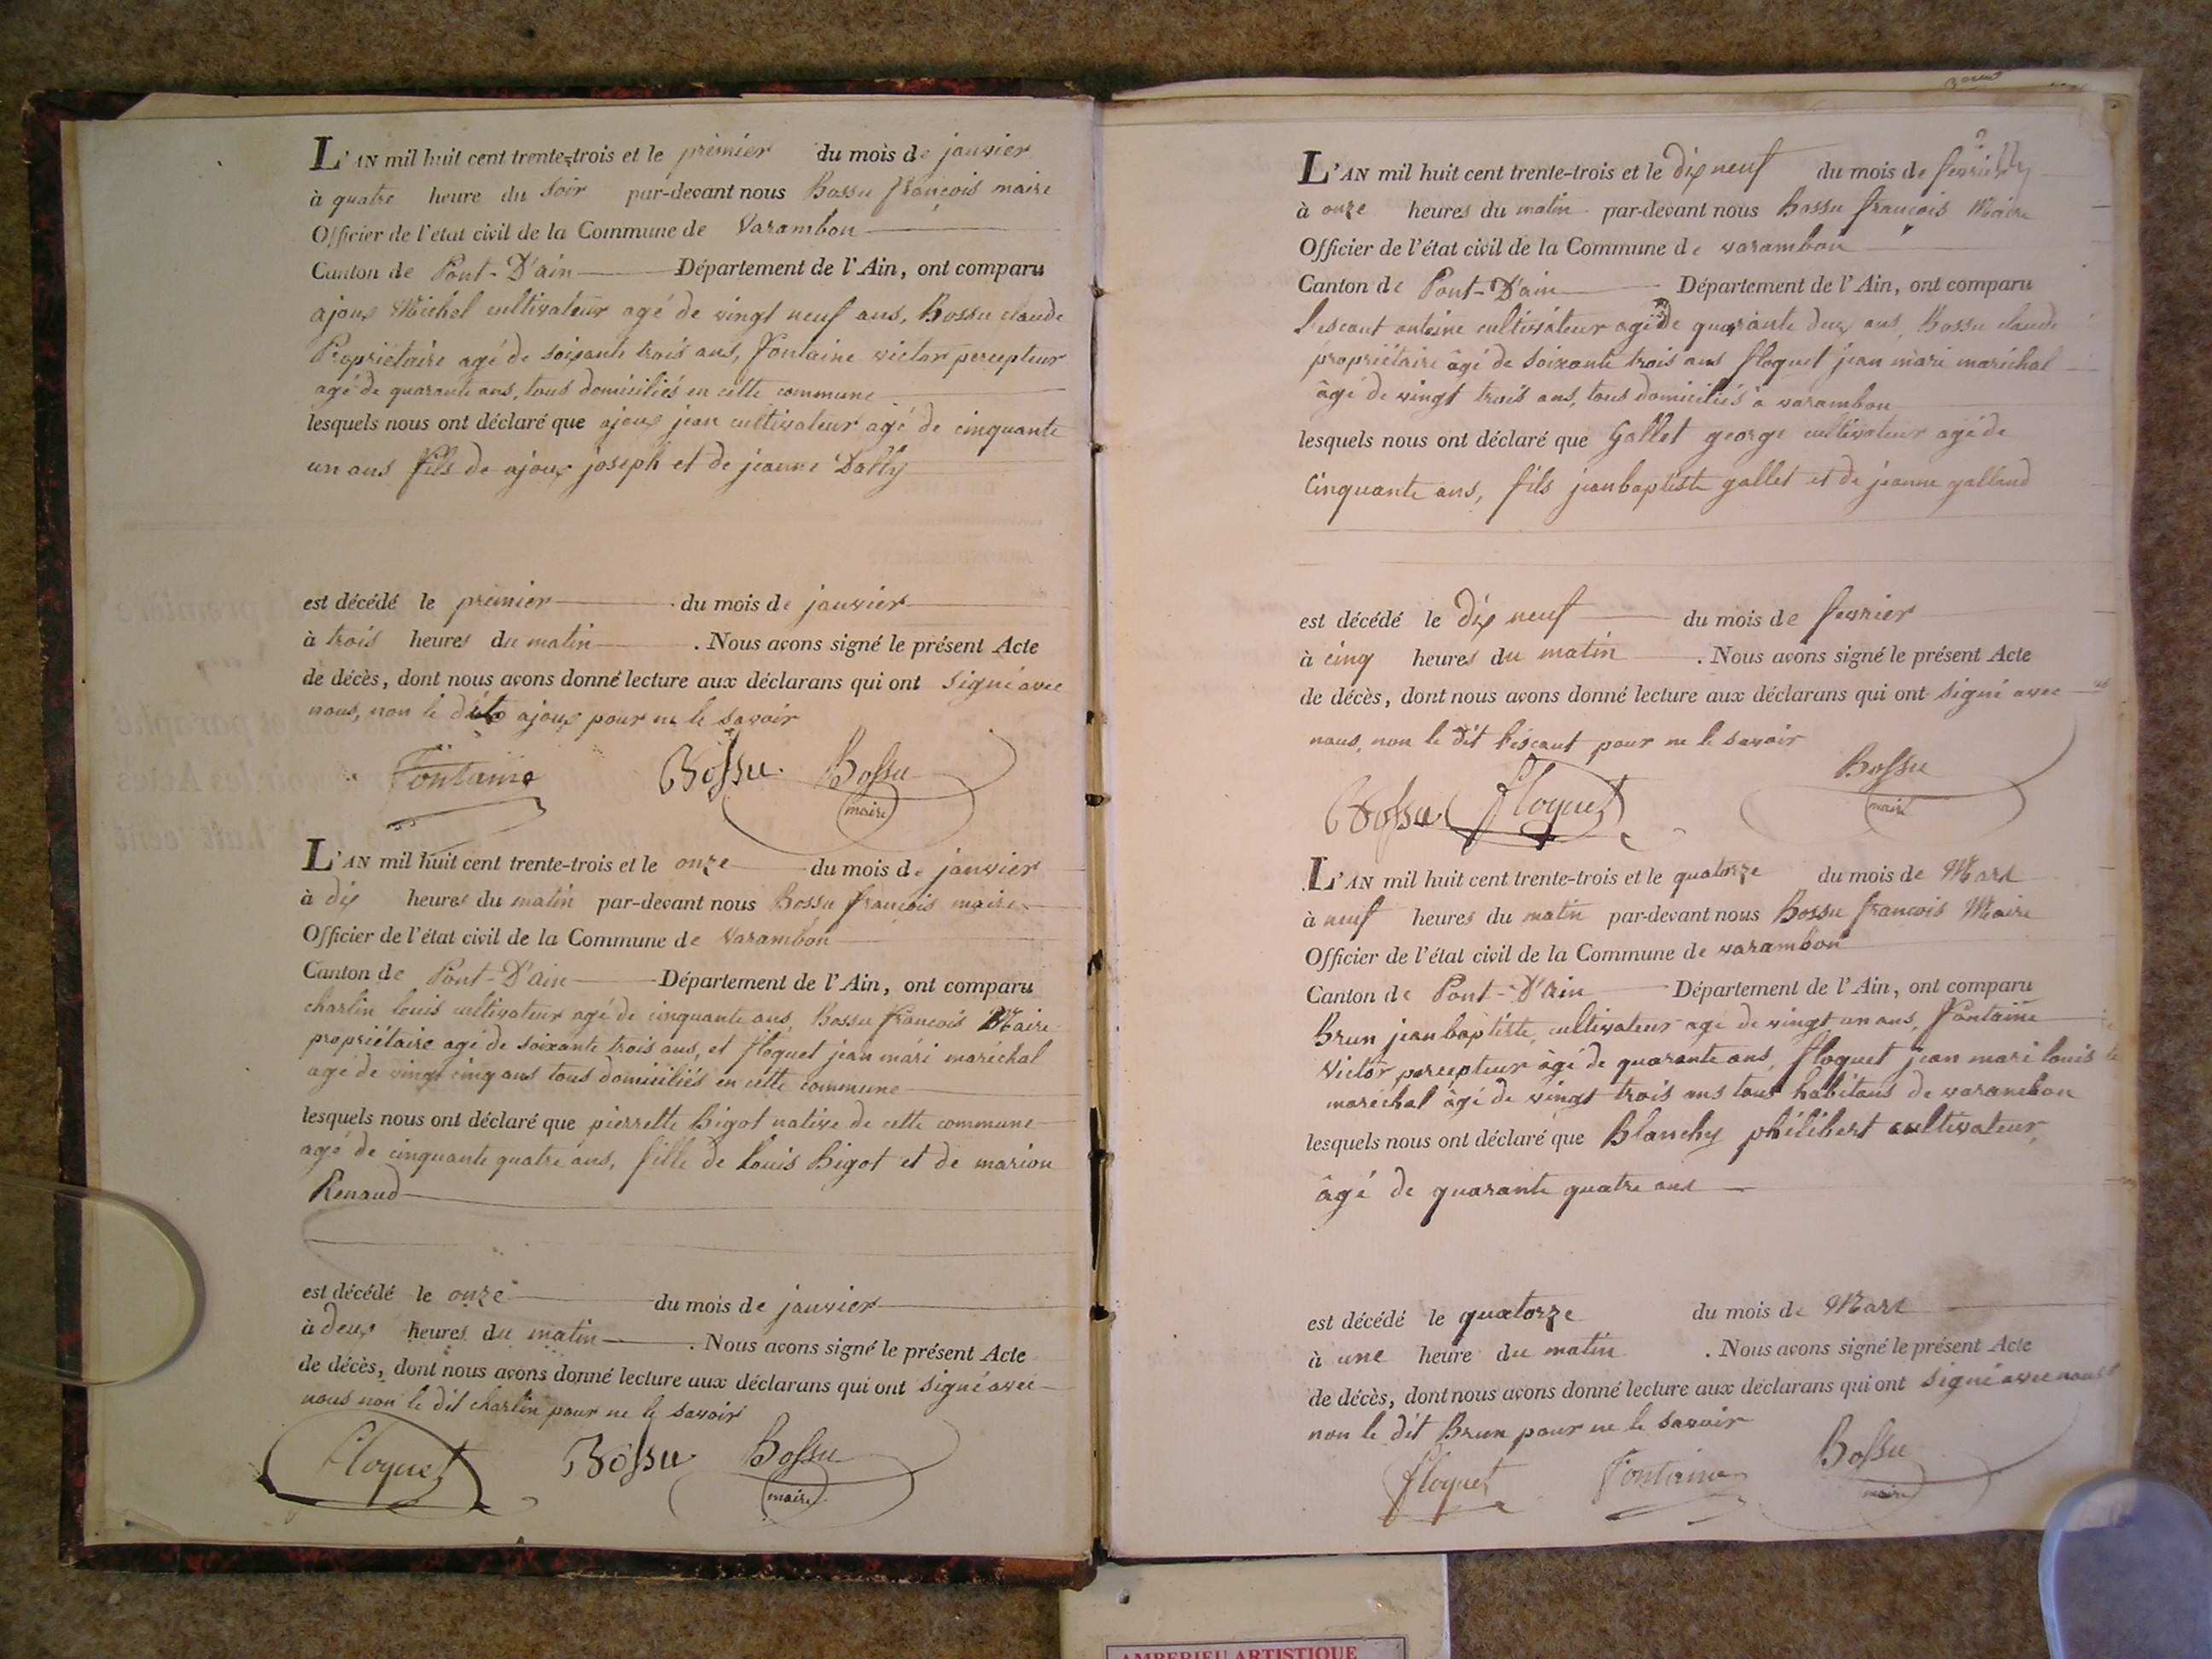 L'AN mil huit cent trente-trois et le premier du mois de janvier
à quatre heure du soir par-devant nous Bossu françois maire
Officier de l'état civil de la Commune de Varambon
Canton de Pont-D'ain Département de l'Ain, ont comparu
ajoux Michel cultivateur agé de vingt neuf ans, Bossu claude
Propriétaire agé de soixante trois ans, fontaine victor percepteur
agé de quarante ans, tous domiciliés en cette commune
lesquels nous ont déclaré que ajoux jean cultivateur agé de cinquante
un ans fils de ajoux joseph et de jeanne Dally
est décédé le premier du mois de janvier
à trois heures du matin . Nous avons signé le présent Acte
de décès, dont nous avons donné lecture aux déclarans qui ont signé avec
nous, non le dit ajoux pour ne le savoir
Fontaine Bossu Bossu
maire
L'AN mil huit cent trente-trois et le onze du mois de janvier
à dix heures du matin par-devant nous Bossu françois maire
Officier de l'état civil de la Commune de Varambon
Canton de Pont-D'ain Département de l'Ain, ont comparu
charlin louis cultivateur agé de cinquante ans, Bossu françois Maire
propriétaire agé de soixante trois ans, et floquet jean mari maréchal
agé de vingt cinq ans tous domiciliés en cette commune
lesquels nous ont déclaré que pierrette Bigot native de cette commune
agé de cinquante quatre ans, fille de louis Bigot et de marion
Renaud
est décédé le onze du mois de janvier
à deux heures du matin . Nous avons signé le présent Acte
de décès, dont nous avons donné lecture aux déclarans qui ont signé avec
nous non le dit charlin pour ne le savoir
floquet Bossu Bossu
maire
L'AN mil huit cent trente-trois et le dix neuf du mois de fevrier
à onze heures du matin par-devant nous Bossu françois Maire
Officier de l'état civil de la Commune de varambon
Canton de Pont-D'ain Département de l'Ain, ont comparu
antoine cultivateur agé de quarante deux ans, Bossu claude
propriétaire âgé de soixante trois ans floquet jean mari maréchal
âgé de vingt trois ans, tous domiciliés à varambon
lesquels nous ont déclaré que Gallet george cultivateur agé de
Cinquante ans, fils jean baptiste gallet et de jeanne galland
est décédé le dix neuf du mois de fevrier
à cinq heures du matin . Nous avons signé le présent Acte
de décès, dont nous avons donné lecture aux déclarans qui ont signé avec
nous, non le dit pour ne le savoir
Bossu floquet Bossu
maire
L'AN mil huit cent trente-trois et le quatorze du mois de Mars
à neuf heures du matin par-devant nous Bossu francois Maire
Officier de l'état civil de la Commune de varambon
Canton de Pont-D'ain Département de l'Ain, ont comparu
Brun jean baptiste, cultivateur agé de vingt un ans, fontaine
Victor percepteur âgé de quarante ans, floquet jean mari louis
maréchal âgé de vingt trois ans tous habitans de varambon
lesquels nous ont déclaré que Blanchy philibert cultivateur,
âgé de quarante quatre ans
est décédé le quatorze du mois de Mars
à une heure du matin . Nous avons signé le présent Acte
de décès, dont nous avons donné lecture aux déclarans qui ont signé avec nous
non le dit Brun pour ne le savoir
floquet fontaine Bossu
maire
AMBERIEU ARTISTIQUE